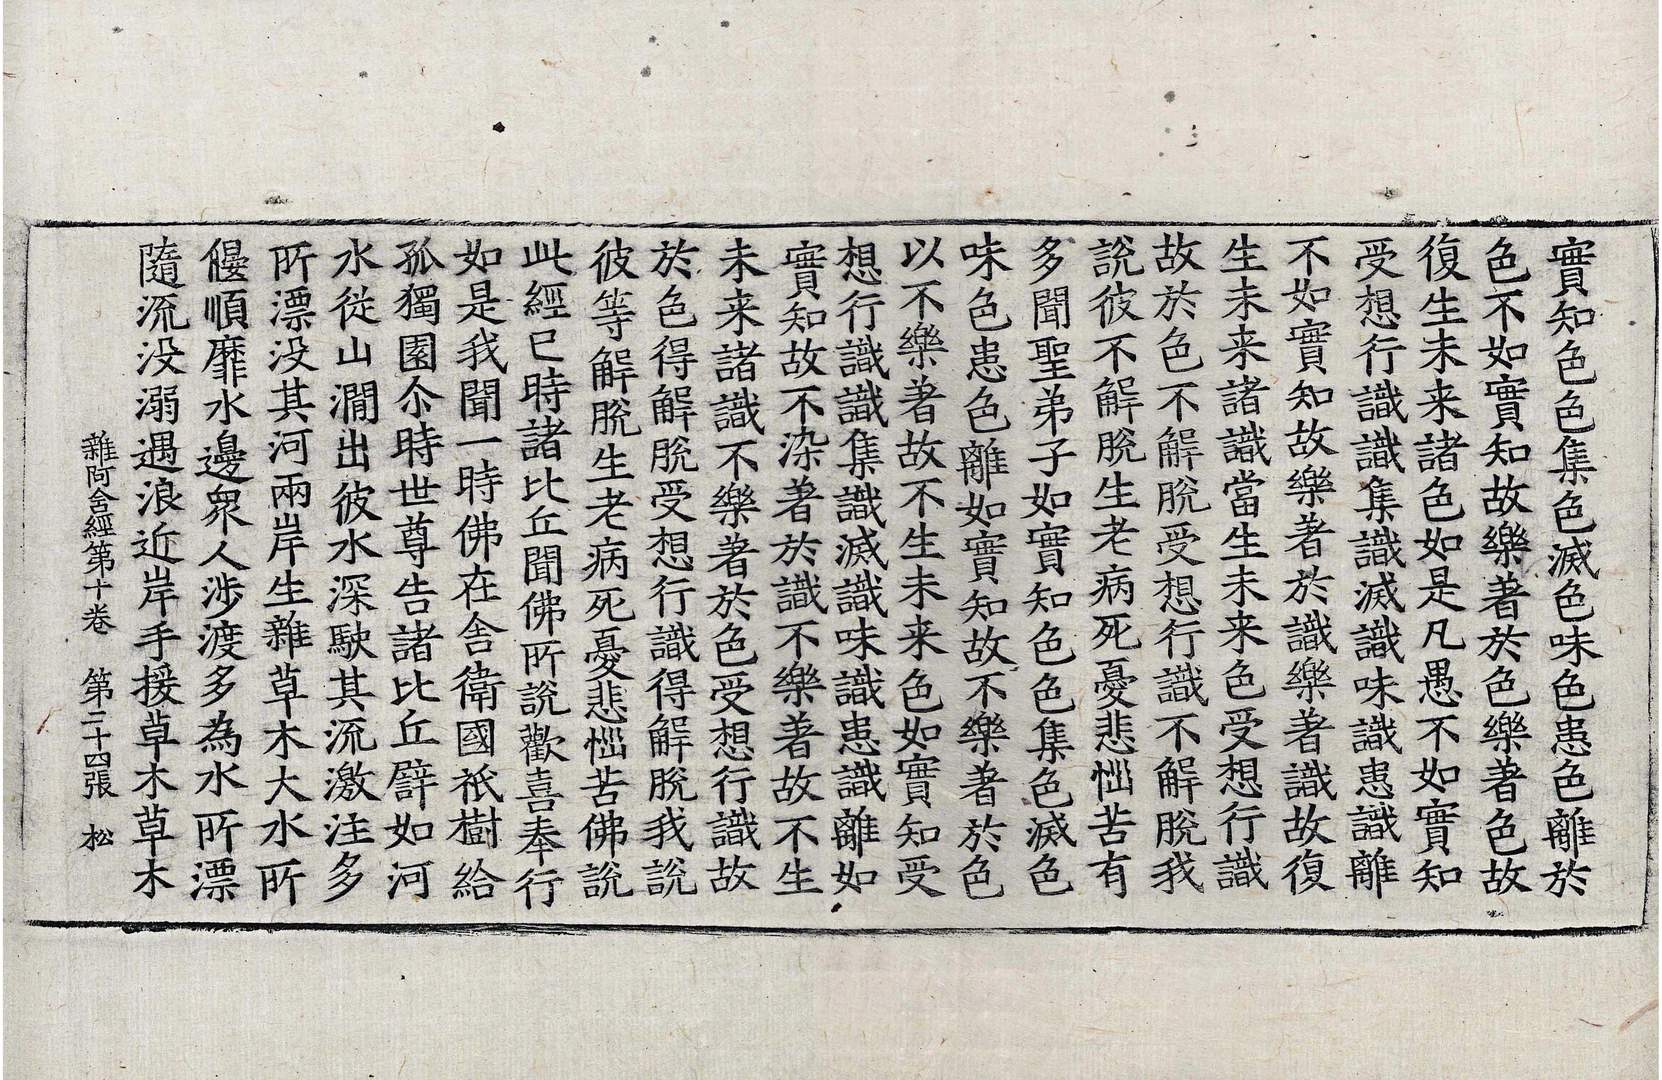 實知色色集色滅色味色患色離於
色不如實知故樂著於色樂著色故
復生未来諸色如是凡愚不如實知
受想行識識集識滅識味識患識離
不如實知故樂著於識樂著識故復
生未来諸識當生未来色受想行識
故於色不解脫受想行識不解脫我
說彼不解脫生老病死憂悲惱苦有
多聞聖弟子如實知色色集色滅色
味色患色離如實知故不樂著於色
以不樂著故不生未来色如實知受
想行識識集識滅識味識患識離如
實知故不染著於識不樂著故不生
未来諸識不樂著於色受想行識故
於色得解脫受想行識得解脫我說
彼等解脫生老病死憂悲惱苦佛說
此經已時諸比丘聞佛所說歡喜奉行
如是我聞一時佛在舍衛國祇樹給
孤獨園尒時世尊告諸比丘譬如河
水從山澗出彼水深駛其流激注多
所漂没其河兩岸生雜草木大水所
偃順靡水邊眾人涉渡多為水所漂
隨流没溺遇浪近岸手援草木草木
雜阿含經第十卷 第二十四張 松